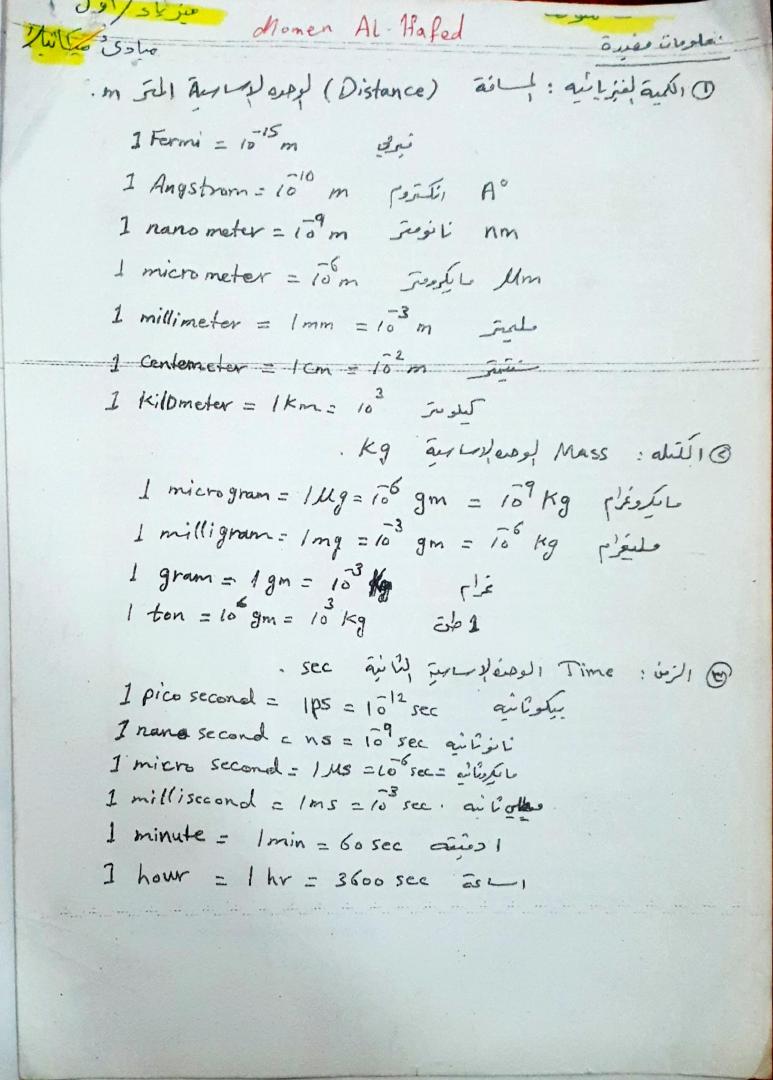 فيزياء/اول
Momen Al-Hafed
مبادئ ميكانيك
معلومات مفيدة
① الكمية الفيزيائيه : المسافة (Distance) الوحده الاساسية المتر m.
1 Fermi = 10^-15 m فيرمي
1 Angstrom = 10^-10 m انكستروم A°
1 nano meter = 10^-9 m نانومتر nm
1 micro meter = 10^-6 m مايكرومتر μm
1 millimeter = 1mm = 10^-3 m مليمتر
1 centemeter = 1cm = 10^-2 m سنتيمتر
1 kilometer = 1km = 10^3 كيلومتر
② الكتله : Mass الوحدة الاساسية kg .
1 microgram = 1μg = 10^-6 gm = 10^-9 kg مايكروغرام
1 milligram = 1mg = 10^-3 gm = 10^-6 kg مليغرام
1 gram = 1gm = 10^-3 kg غرام
1 ton = 10^6 gm = 10^3 kg 1 طن
③ الزمن : Time الوحدة الاساسية الثانية sec .
1 pico second = 1ps = 10^-12 sec بيكوثانيه
1 nano second = ns = 10^-9 sec نانوثانيه
1 micro second = 1μs = 10^-6 sec = مايكروثانيه
1 millisecond = 1ms = 10^-3 sec . ملي ثانيه
1 minute = 1min = 60 sec 1 دقيقه
1 hour = 1 hr = 3600 sec 1 ساعة